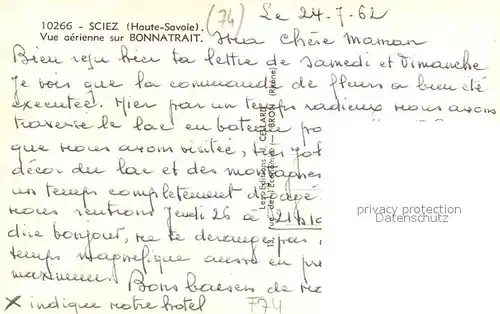 10266 - SCIEZ (Haute-Savoie).
Vue aérienne sur BONNATRAIT.
(74)
Le 24-7-62
Ma chère Maman
Bien reçu hier ta lettre de Samedi et Dimanche
Je vois que la commande de fleurs a bien été
exécutée. Hier par un temps radieux nous avons
traversé le lac en bateau po
que nous avons visitée, très jol
décor du lac et des montagnes
un temps complètement dégagé
nous rentrons Jeudi 26 à 21h10
dire bonjour, ne te déranges pas
temps magnifique aussi en pr
maximum. Bons baisers de
x indique notre hôtel
F74
Les Editions J. CELLARD
13, rue de l'Economie - BRON (Rhône)
privacy protection
Datenschutz